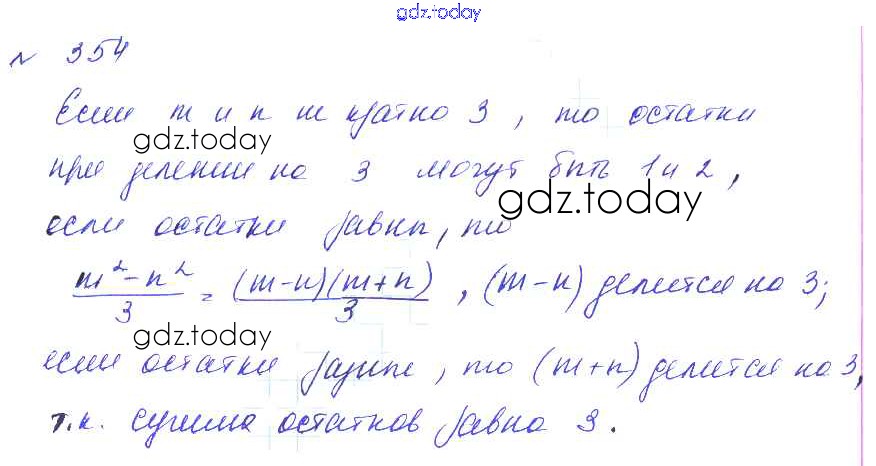 gdz.today
№ 354
Если m и n не кратно 3, то остатки
gdz.today
при делении на 3 могут быть 1 и 2,
gdz.today
если остатки равны, то
m² - n² / 3 = (m-n)(m+n) / 3, (m-n) делится на 3;
gdz.today
если остатки разные, то (m+n) делится на 3,
т.к. сумма остатков равна 3.